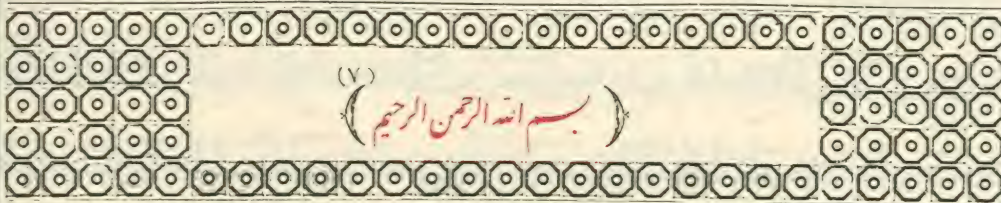 (٧)
﴿ بسم الله الرحمن الرحيم ﴾